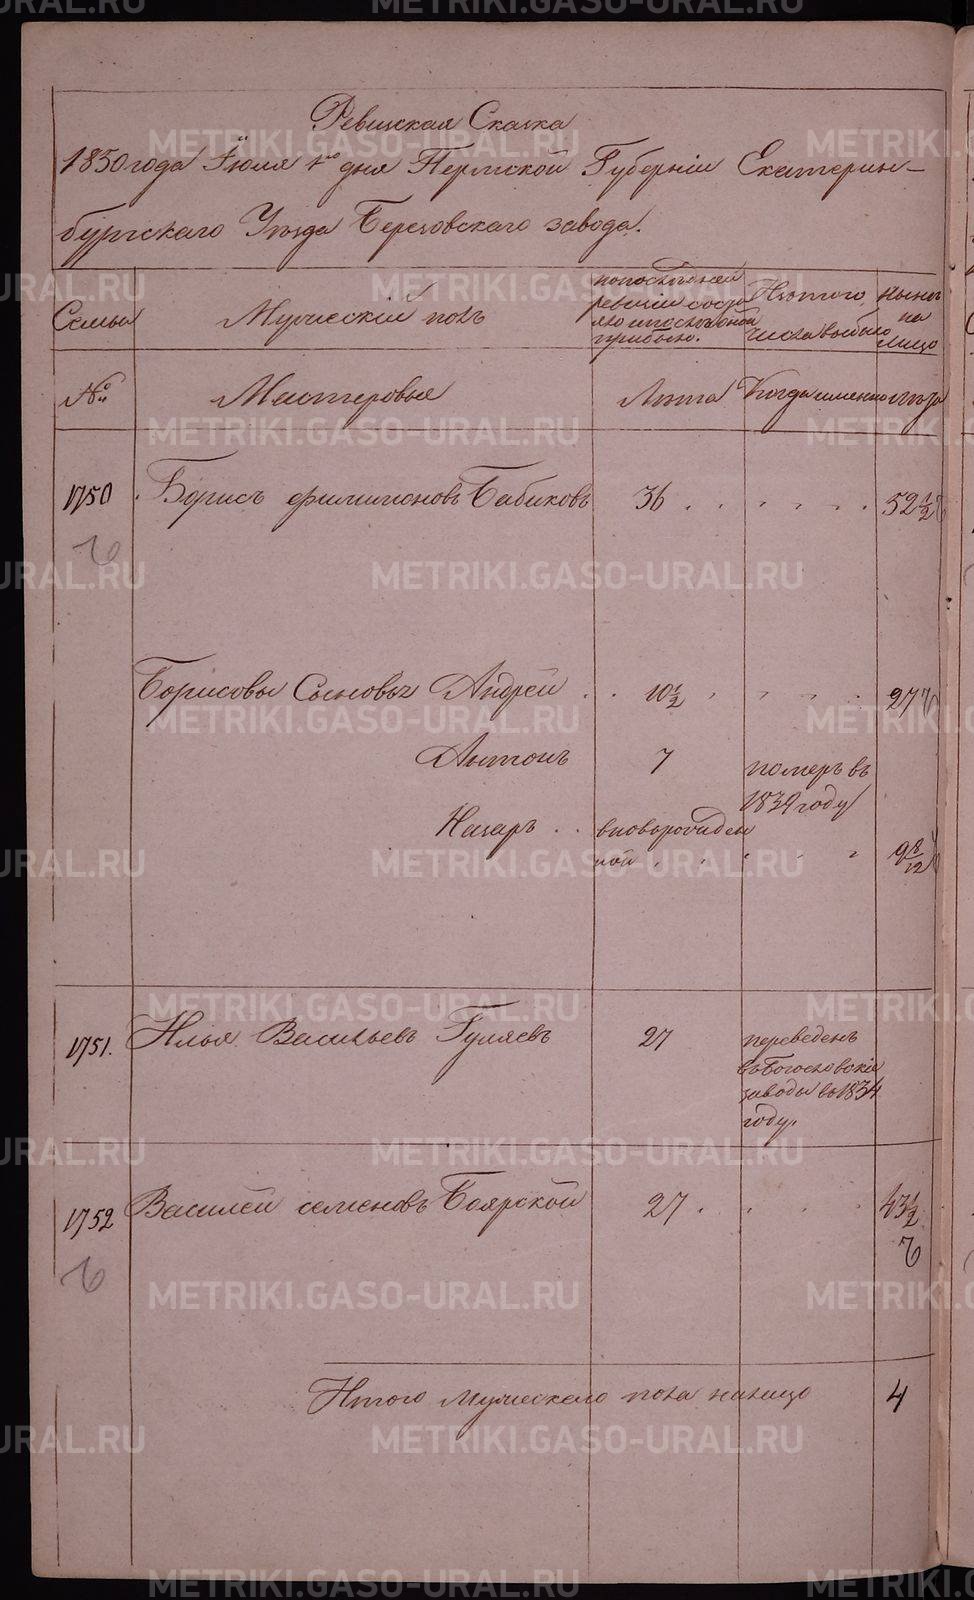 Ревизская Сказка
1850 года Июля 1го дня Пермской Губернии Екатерин-
бургскаго Уезда Березовскаго завода.
Семьи
Мужескій полъ
по последней
ревизіи состо
яло и после оной
прибыло.
Изъ того
числа выбыло
ныне
на
лицо
№
Мастеровые
Лета
Когда именно
лета
1750
Борисъ филимоновъ Бабиковъ
36
52 1/2
Борисовы Сыновья Андрей
10 1/2
27
Антонъ
7
померъ въ
1839 году
Назаръ
вноворожден
ной
9 8/12
1751.
Илья Васильевъ Гуляевъ
27
переведенъ
въ Богословскіе
заводы въ 1834
году.
1752
Василей семеновъ Боярской
27
43 1/2
Итого мужескаго пола налицо
4
METRIKI.GASO-URAL.RU